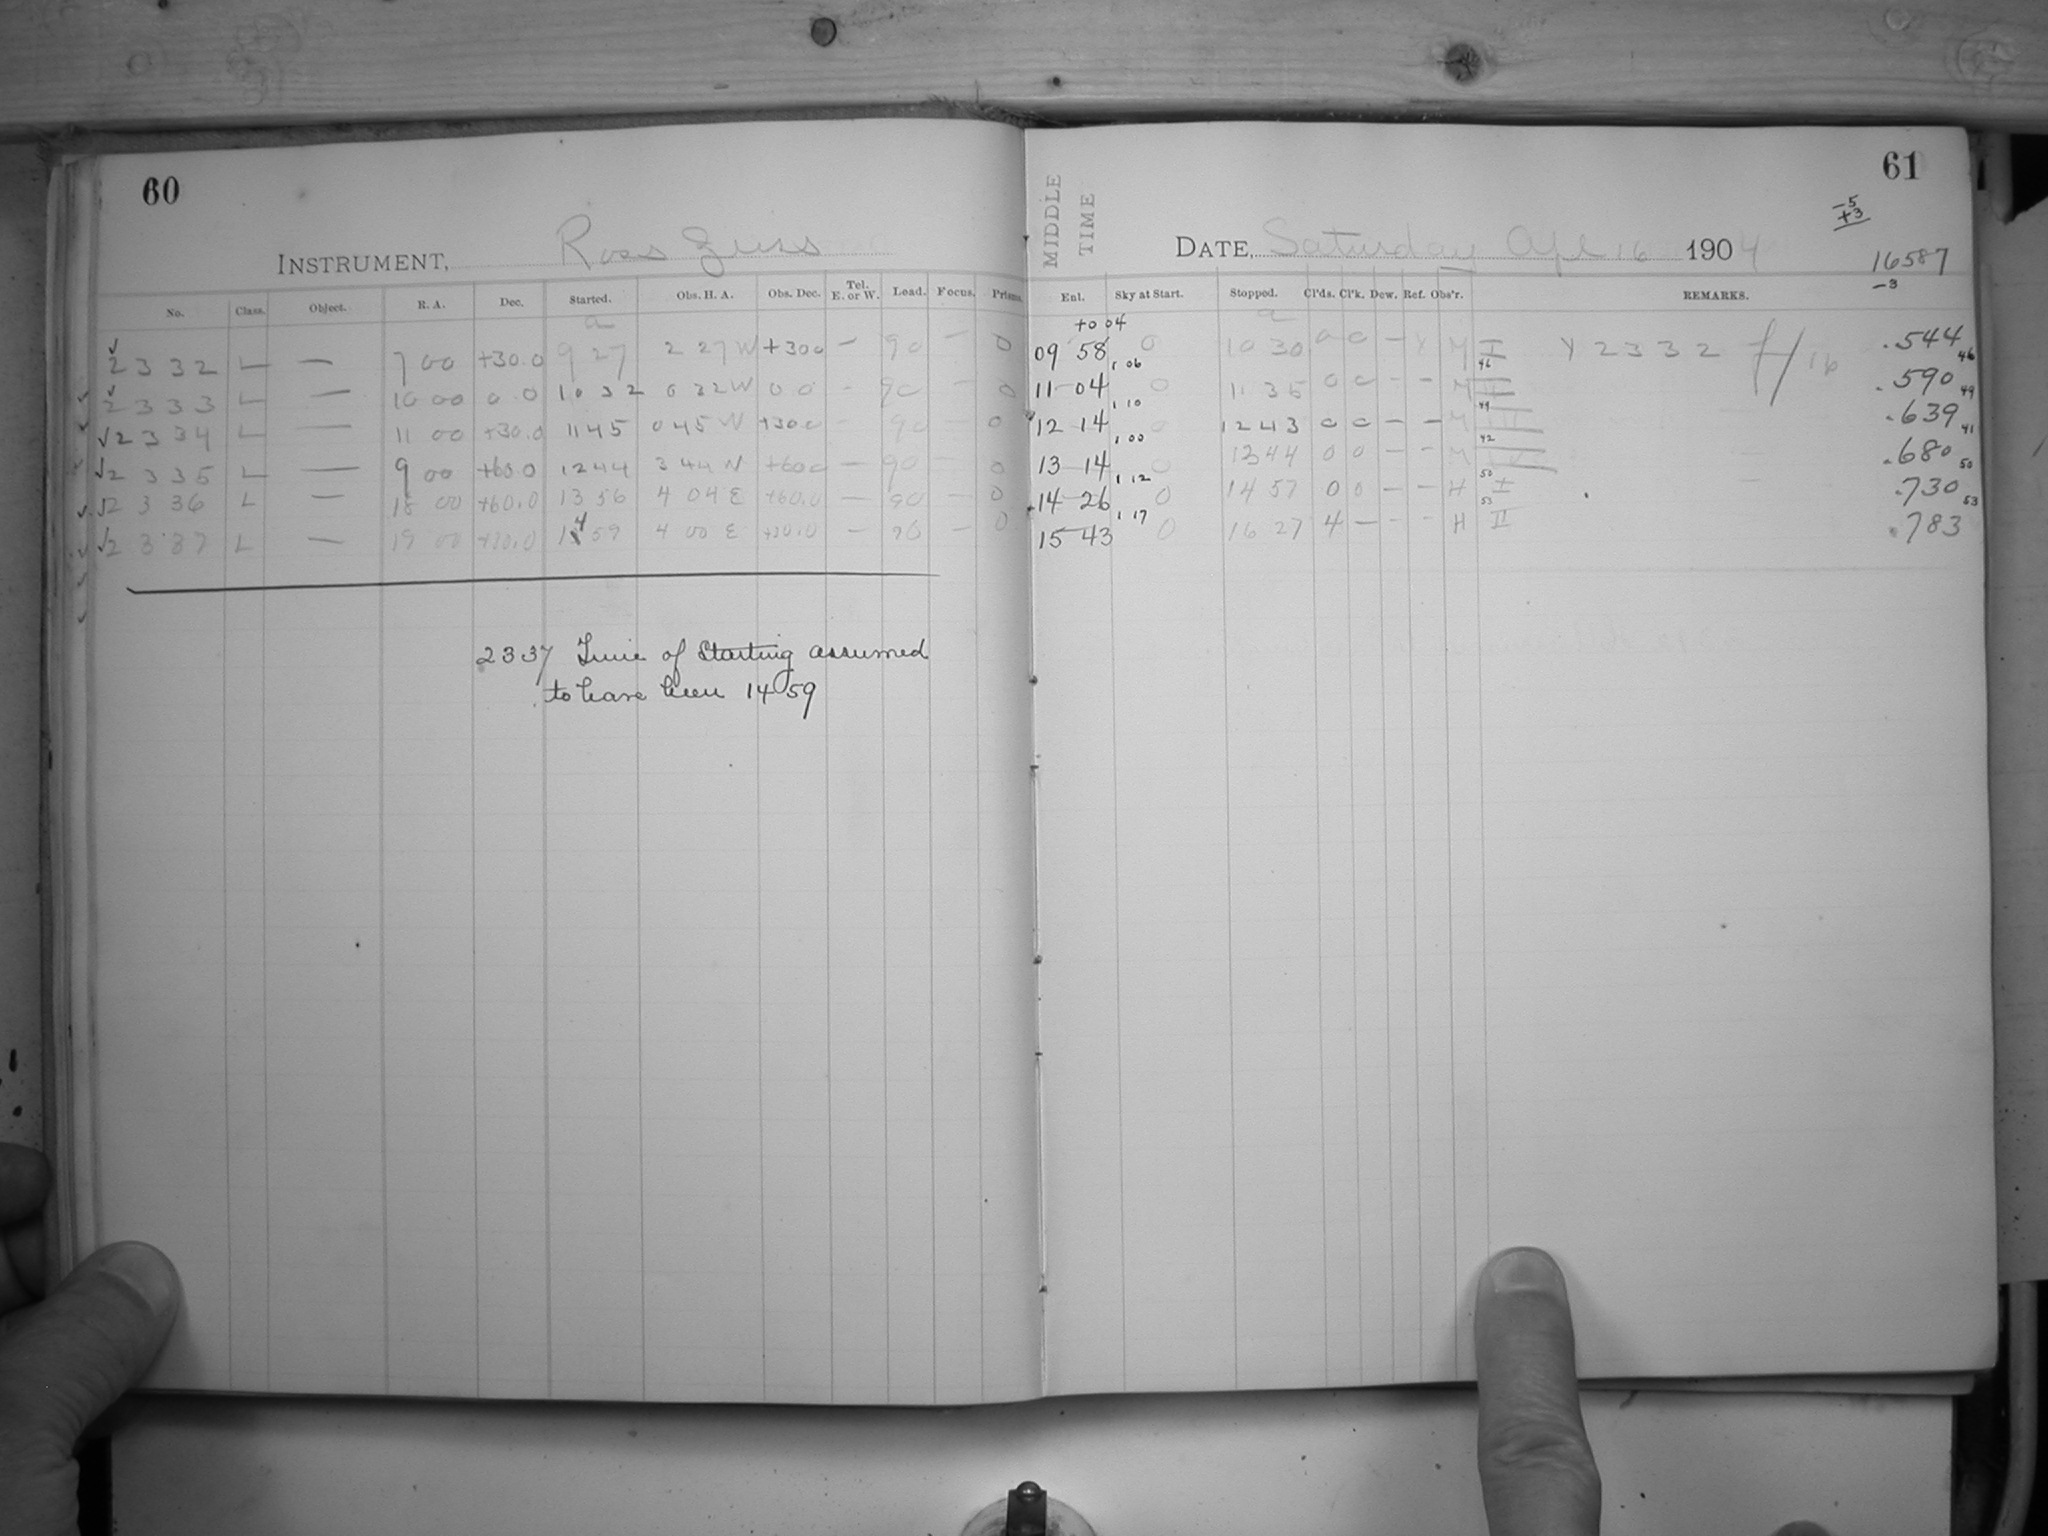 60
INSTRUMENT, Ross Zeiss
No. Class. Object. R. A. Dec. Started. Obs. H. A. Obs. Dec. Tel. E. or W. Load. Focus. Prisms.
2332 L — 7 00 +30.0 9 27 2 27 W +30 0 — 90 — 0
2333 L — 10 00 0.0 10 32 0 32 W 0.0 - 90 - 0
√2334 L — 11 00 +30.0 11 45 0 45 W +30 0 - 90 - 0
√2335 L — 9 00 +60 0 12 44 3 44 W +60 0 — 90 - 0
√2336 L — 18 00 +60.0 13 56 4 04 E +60.0 — 90 - 0
√2337 L — 19 00 +30.0 14 59 4 00 E +30.0 — 90 - 0
2337 Time of Starting assumed
to have been 14 59
61
MIDDLE
TIME
DATE, Saturday Apl 16 1904
-5
+3
16587
-3
Enl. Sky at Start. Stopped. Cl'ds. Cl'k. Dew. Ref. Obs'r. REMARKS.
+0 04
09 58 0 10 30 0 0 — Y M I Y 2332 f/16 .544
1 06 46 46
11 04 0 11 35 0 0 - - M .590
1 10 49 49
12 14 0 12 43 0 0 — — M .639
1 00 42 41
13 14 0 13 44 0 0 - - M .680
1 12 50 50
14 26 0 14 57 0 0 — - H I .730
1 17 53 53
15 43 0 16 27 4 — - - H II .783